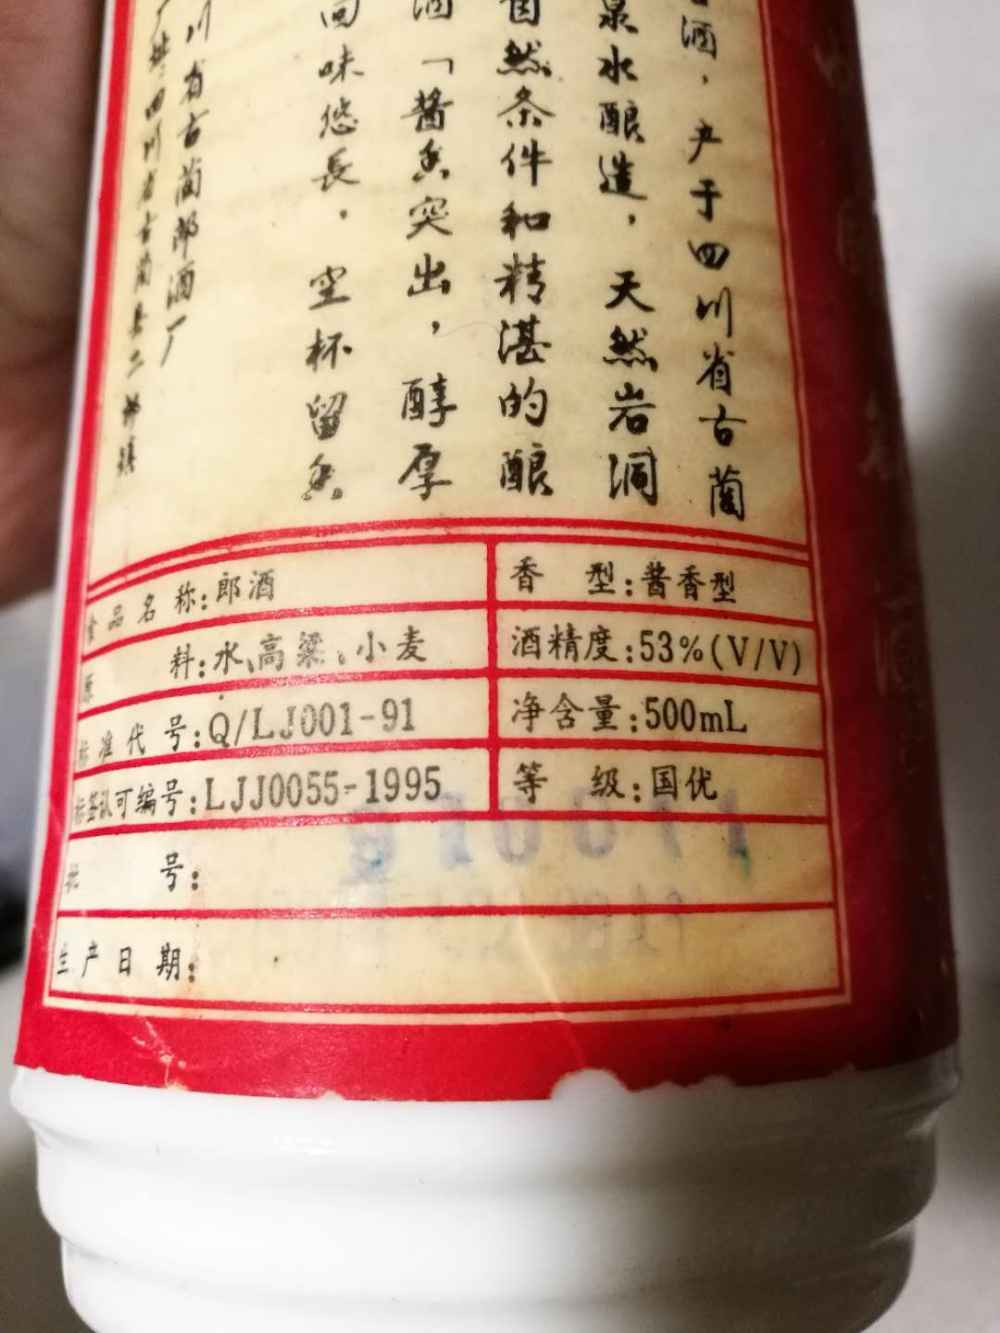 酒，产于四川省古蔺
泉水酿造，天然岩洞
然条件和精湛的酿
酒「酱香突出，醇厚
回味悠长．空杯留香
川省古蔺郎酒厂
厂址四川省古蔺县二郎镇
食品名称：郎酒
香型：酱香型
原料：水、高粱、小麦
酒精度：53%(V/V)
标准代号：Q/LJ001-91
净含量：500mL
标签认可编号：LJJ0055-1995
等级：国优
批号：
生产日期：